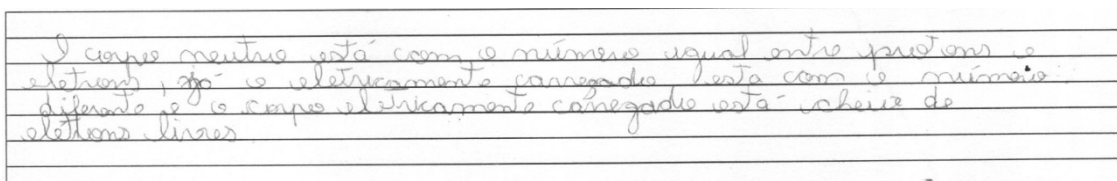 O corpo neutro está com o número igual entre protons e
eletrons, já o eletricamente carregado esta com o número
diferente e o corpo eletricamente carregado está cheio de
eletrons livres